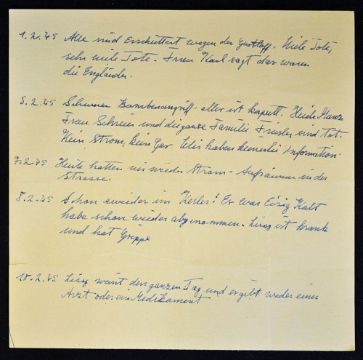 1.2.45 Alle sind Erschüttert wegen der Gustloff. Viele Tote,
sehr viele Tote. Frau Karl sagt das waren
die Engländer.
5.2.45 Schwerer Bombenangriff - alles ist kaputt. Heide
Frau Schreier und die ganze Familie Friesler sind tot.
Kein Strom, kein Gas Wir haben keinerlei Information
7.2.45 Heute hatten wir wieder Strom - Aufräumen in der
Strasse.
8.2.45 Schon zweider im Keller! Er war Eisig Kalt
habe schon wieder abgenommen. ist krank
und hat Grippe
10.2.45 weint den ganzen Tag und es gibt weder einen
Arzt oder ein Medikament